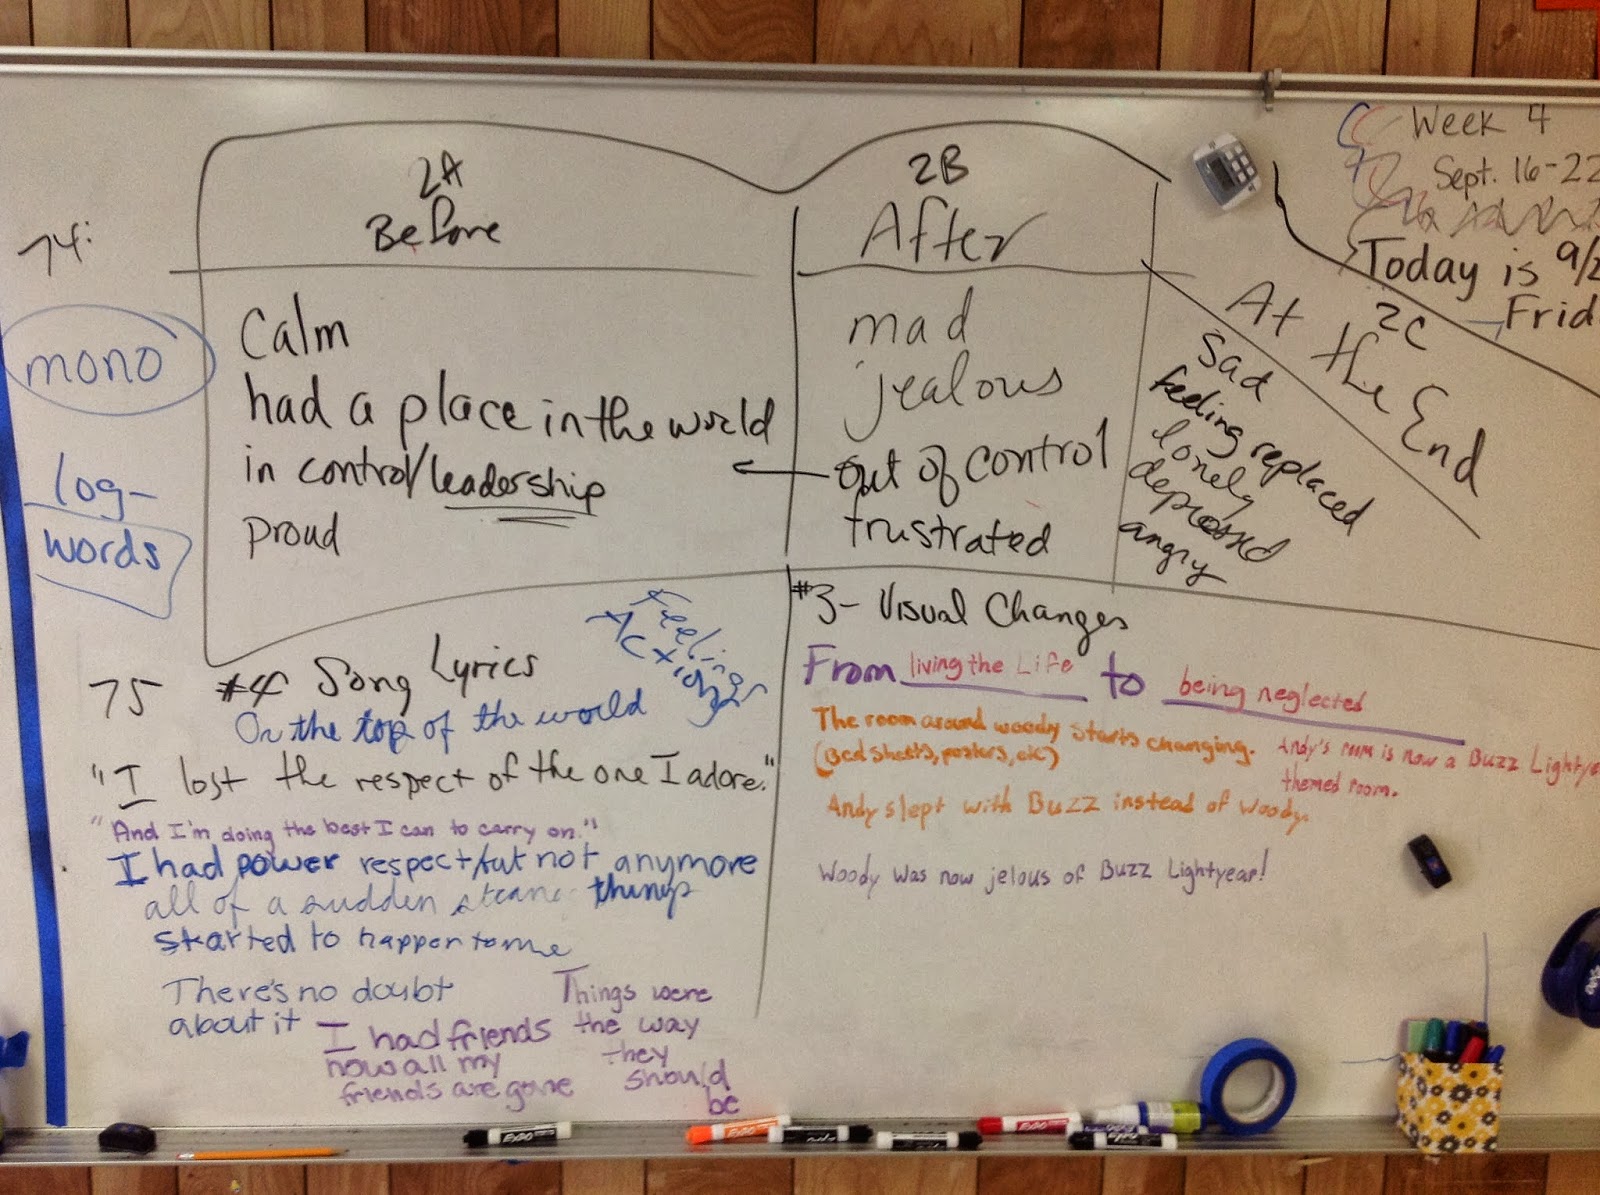 Week 4
Sept. 16-22
Today is 9/2
Frid
74:
mono
log-
words
2A
Before
Calm
had a place in the world
in control/leadership
proud
2B
After
mad
jealous
out of control
frustrated
2C
At the End
Sad
feeling replaced
lonely
depressed
angry
75
#4 Song Lyrics
Feelings
Actions
On the top of the world
"I lost the respect of the one I adore."
"And I'm doing the best I can to carry on."
I had power respect/but not anymore
all of a sudden things
started to happen to me
There's no doubt
about it
I had friends
now all my
friends are gone
Things were
the way
they
should
be
#3- Visual Changes
From living the Life to being neglected
The room around woody starts changing.
(Bed sheets, posters, etc)
Andy's room is now a Buzz Lightye
themed room.
Andy slept with Buzz instead of Woody.
Woody was now jelous of Buzz Lightyear!
EXPO
EXPO
EXPO